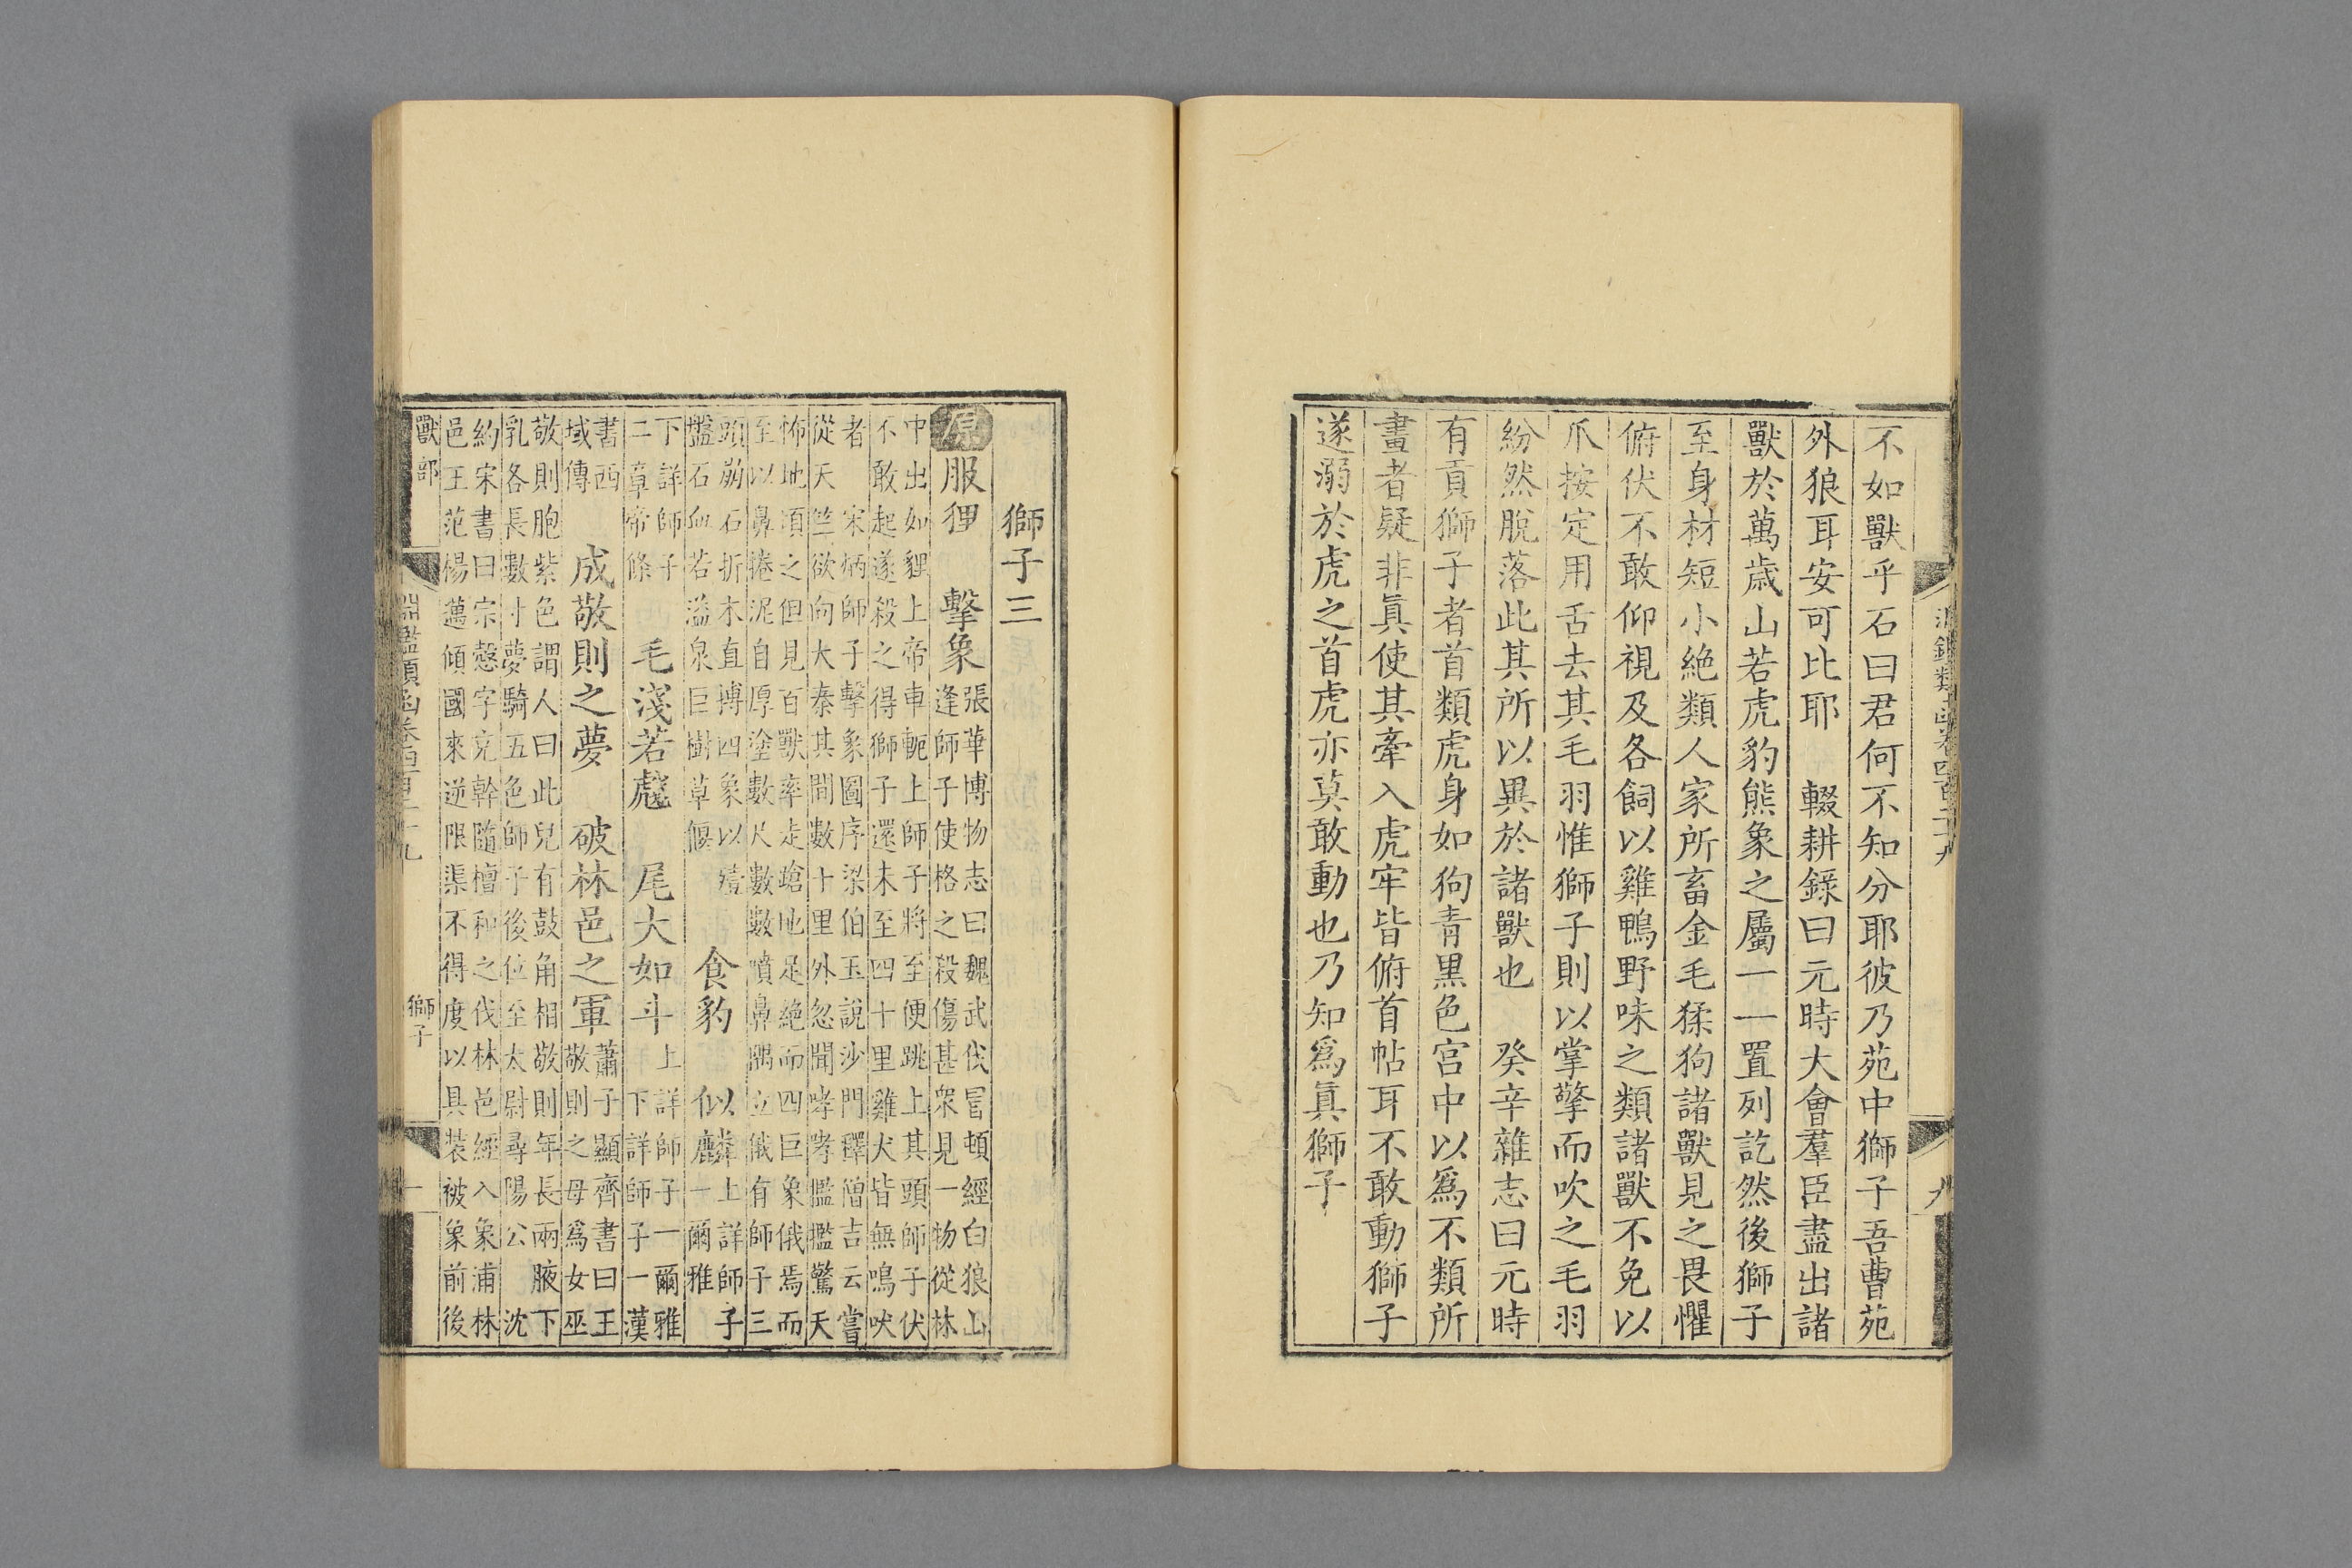 不如獸乎石曰君何不知分耶彼乃苑中獅子吾曹苑
外狼耳安可比耶　輟耕錄曰元時大會羣臣盡出諸
獸於萬歲山若虎豹熊象之屬一一置列訖然後獅子
至身材短小絶類人家所畜金毛猱狗諸獸見之畏懼
俯伏不敢仰視及各飼以雞鴨野味之類諸獸不免以
爪按定用舌去其毛羽惟獅子則以掌擎而吹之毛羽
紛然脫落此其所以異於諸獸也　癸辛雜志曰元時
有貢獅子者首類虎身如狗青黑色宫中以爲不類所
畫者疑非眞使其牽入虎牢皆俯首帖耳不敢動獅子
遂溺於虎之首虎亦莫敢動也乃知爲眞獅子
獅子三
原服狸　擊象張華博物志曰魏武伐冒頓經白狼山
逢師子使格之殺傷甚衆見一物從林
中出如貍上帝車軛上師子將至便跳上其頭師子伏
不敢起遂殺之得獅子還未至四十里雞犬皆無鳴吠
者　宋炳師子擊象圖序梁伯玉說沙門釋僧吉云嘗
從天竺欲向大秦其間數十里外忽聞哮孝㰖㰖驚天
怖地頃之但見百獸率走蹌地足絶而四巨象俄焉而
至以鼻捲泥自厚塗數尺數數噴鼻隅立俄有師子三
頭崩石折木直搏四象以殪
盬石血若溢泉巨樹草偃　食豹　似麟上詳師子
一爾雅
下詳師子
二章帝條　毛淺若虦　尾大如斗上詳師子一爾雅
下詳師子一漢
書西
域傳　成敬則之夢　破林邑之軍蕭子顯齊書曰王
敬則之母爲女巫
敬則胞紫色謂人曰此兒有鼓角相敬則年長兩腋下
乳各長數寸夢騎五色師子後位至太尉尋陽公　沈
約宋書曰宗慤字克幹隨檀和之伐林邑經入象浦林
邑王范楊邁傾國來逆限渠不得度以具裝被象前後
獸部
淵鑑類函卷四百二十九
獅子
一